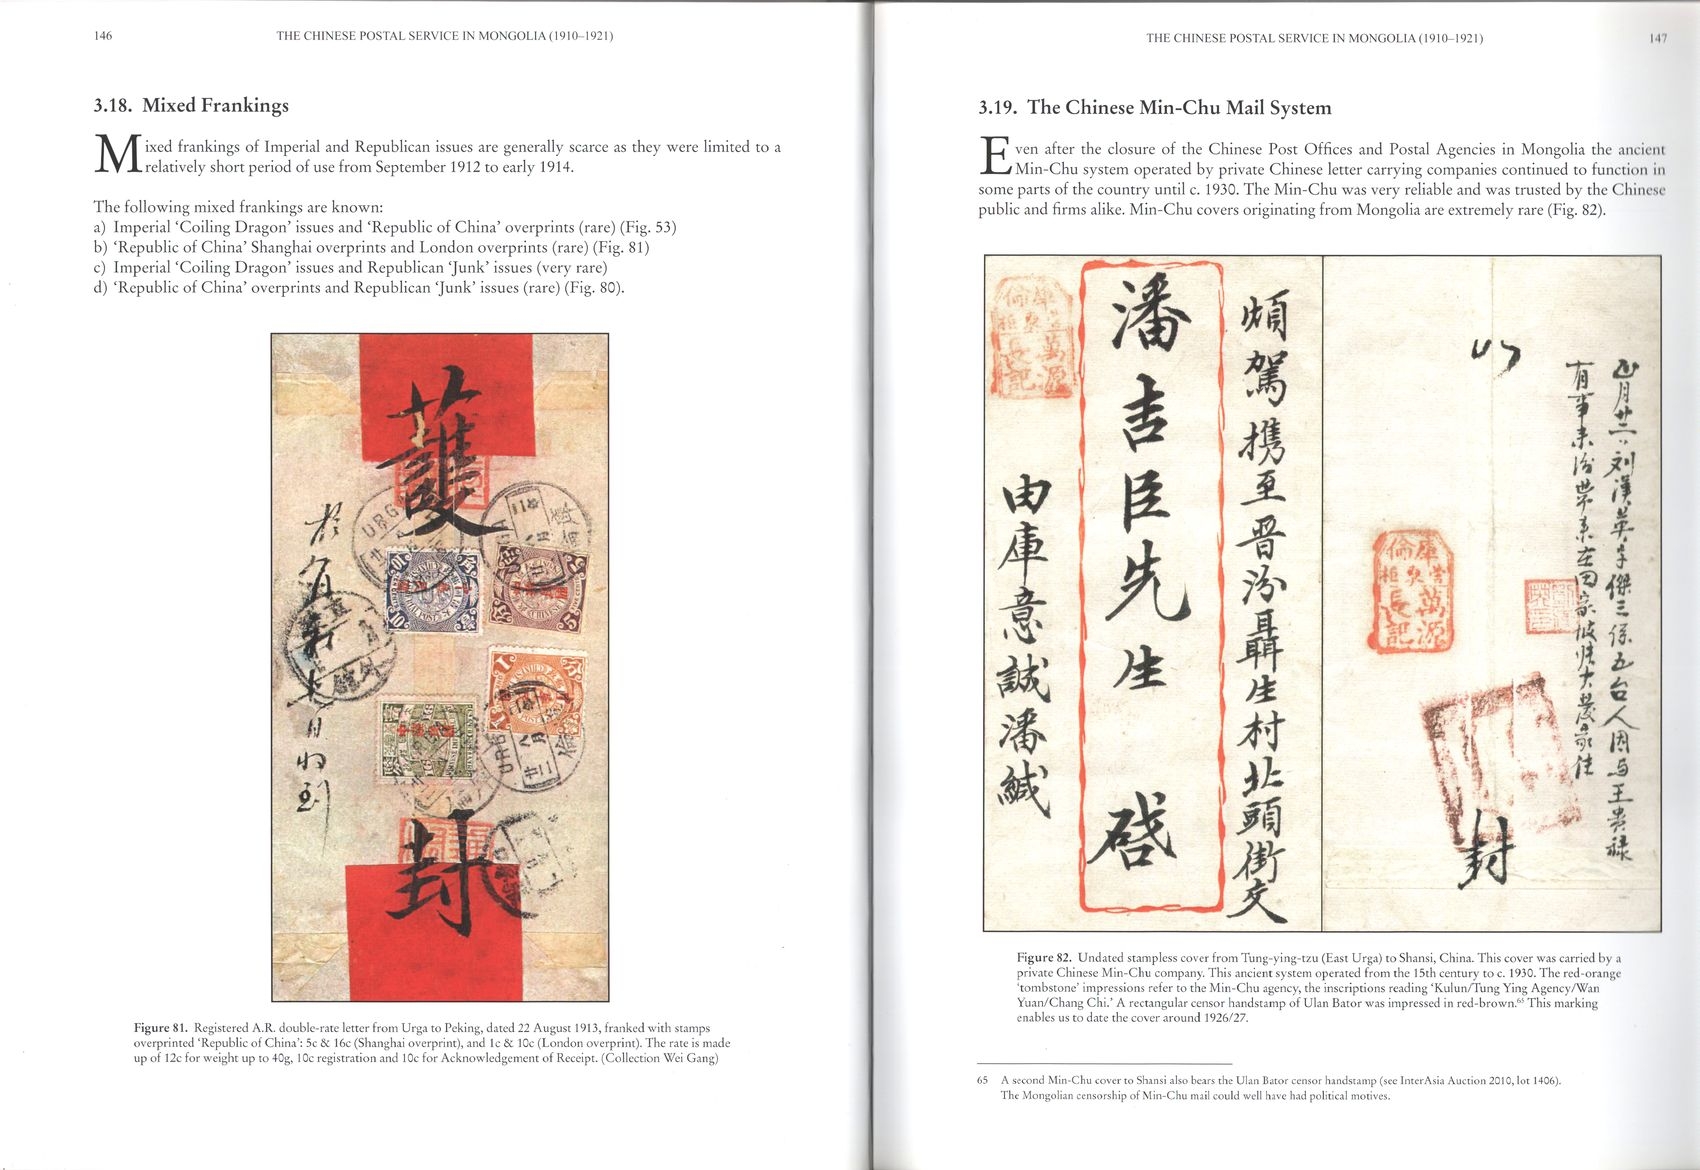 146
THE CHINESE POSTAL SERVICE IN MONGOLIA (1910–1921)
3.18. Mixed Frankings
Mixed frankings of Imperial and Republican issues are generally scarce as they were limited to a
relatively short period of use from September 1912 to early 1914.
The following mixed frankings are known:
a) Imperial ‘Coiling Dragon’ issues and ‘Republic of China’ overprints (rare) (Fig. 53)
b) ‘Republic of China’ Shanghai overprints and London overprints (rare) (Fig. 81)
c) Imperial ‘Coiling Dragon’ issues and Republican ‘Junk’ issues (very rare)
d) ‘Republic of China’ overprints and Republican ‘Junk’ issues (rare) (Fig. 80).
護
封
Figure 81. Registered A.R. double-rate letter from Urga to Peking, dated 22 August 1913, franked with stamps
overprinted ‘Republic of China’: 5c & 16c (Shanghai overprint), and 1c & 10c (London overprint). The rate is made
up of 12c for weight up to 40g, 10c registration and 10c for Acknowledgement of Receipt. (Collection Wei Gang)
THE CHINESE POSTAL SERVICE IN MONGOLIA (1910–1921)
147
3.19. The Chinese Min-Chu Mail System
Even after the closure of the Chinese Post Offices and Postal Agencies in Mongolia the ancient
Min-Chu system operated by private Chinese letter carrying companies continued to function in
some parts of the country until c. 1930. The Min-Chu was very reliable and was trusted by the Chinese
public and firms alike. Min-Chu covers originating from Mongolia are extremely rare (Fig. 82).
煩駕携至晋汾聶生村北頭街交
潘吉臣先生 啓
由庫意誠潘緘
正月廿二刘漢英字傑三係五台人因与王貴祿
封
Figure 82. Undated stampless cover from Tung-ying-tzu (East Urga) to Shansi, China. This cover was carried by a
private Chinese Min-Chu company. This ancient system operated from the 15th century to c. 1930. The red-orange
‘tombstone’ impressions refer to the Min-Chu agency, the inscriptions reading ‘Kulun/Tung Ying Agency/Wan
Yuan/Chang Chi.’ A rectangular censor handstamp of Ulan Bator was impressed in red-brown.65 This marking
enables us to date the cover around 1926/27.
65 A second Min-Chu cover to Shansi also bears the Ulan Bator censor handstamp (see InterAsia Auction 2010, lot 1406).
The Mongolian censorship of Min-Chu mail could well have had political motives.